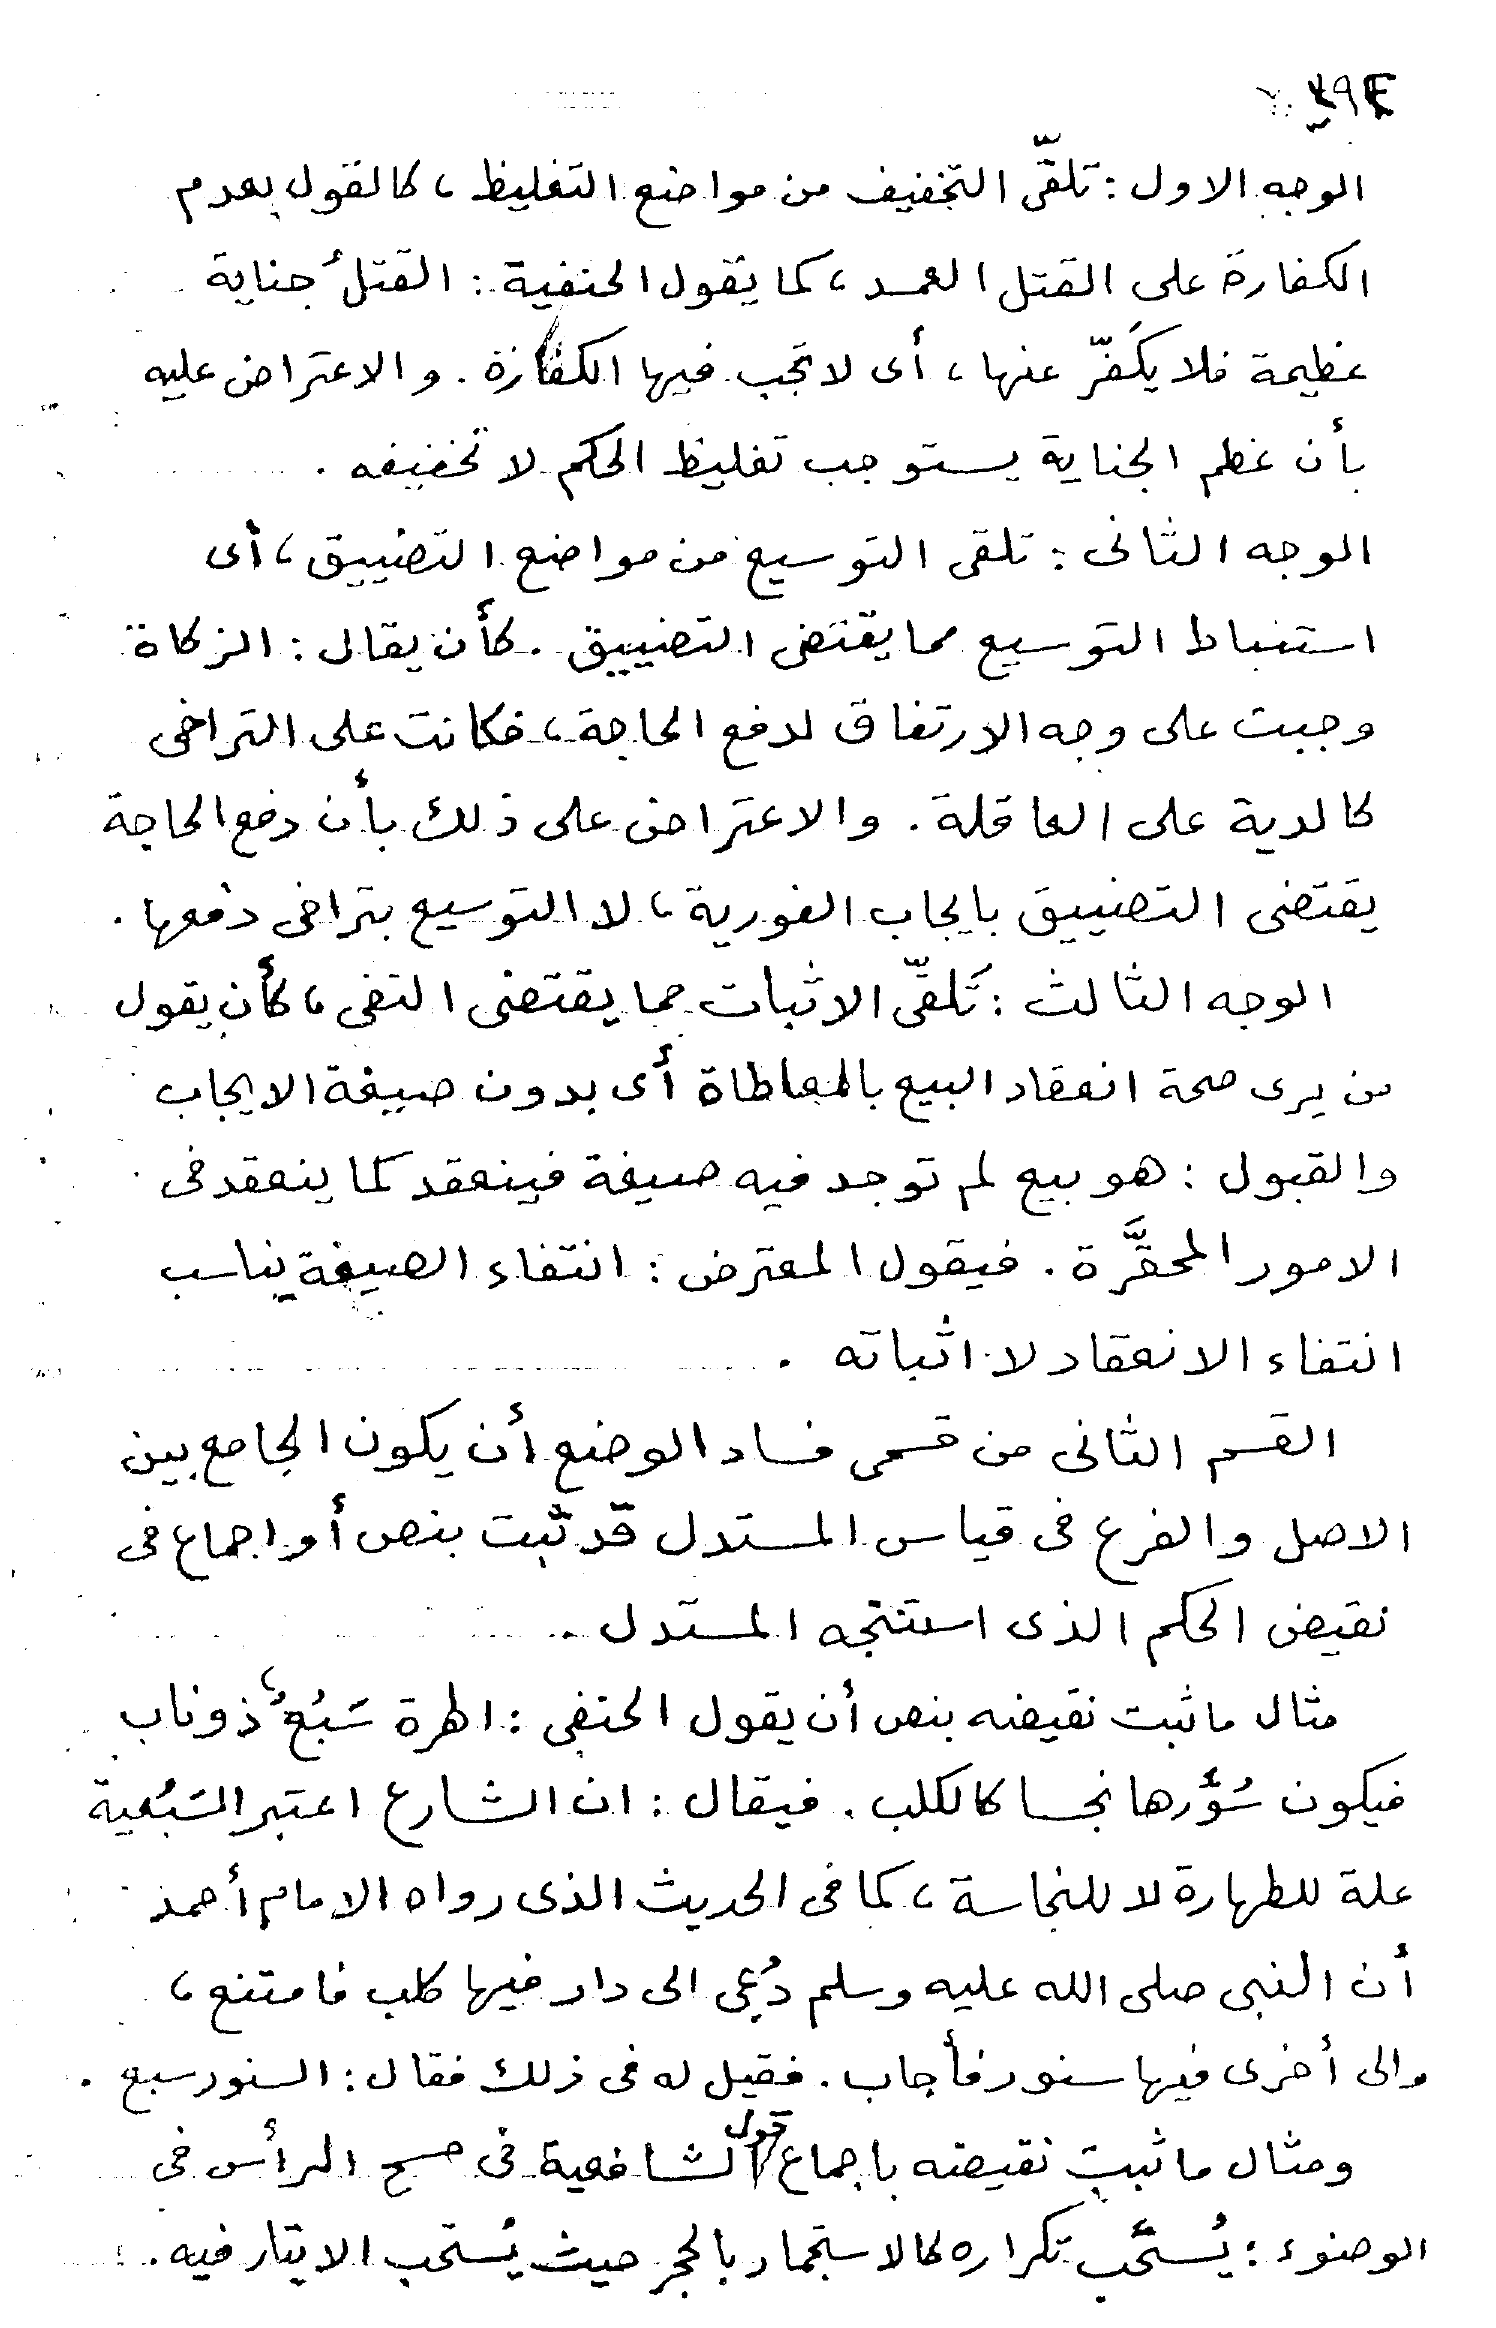 الوجه الاول : تلقّى التخفيف من مواضع التغليظ ، كالقول بعدم
الكفارة على القتل العمد ، كما يقول الحنفية : القتلُ جناية
عظيمة فلا يكَفّر عنها ، أى لا تجب فيها الكفارة . والاعتراض عليه
بأن عظم الجناية يستوجب تغليظ الحكم لا تخفيفه .
الوجه الثانى : تلقى التوسيع من مواضع التضييق ، أى
استنباط التوسيع مما يقتضى التضييق . كأن يقال : الزكاة
وجبت على وجه الارتفاق لدفع الحاجة ، فكانت على التراخى
كالدية على العاقلة . والاعتراض على ذلك بأن دفع الحاجة
يقتضى التضييق بايجاب الفورية ، لا التوسيع بتراخى دفعها .
الوجه الثالث : تَلقّى الاثبات مما يقتضى النفى ، كأن يقول
من يرى صحة انعقاد البيع بالمعاطاة أى بدون صيغة الايجاب
والقبول : هو بيع لم توجد فيه صيغة فينعقد كما ينعقد فى
الامور المحقَّرة . فيقول المعترض : انتفاء الصيغة يناسب
انتفاء الانعقاد لا اثباته .
القسم الثانى من قسمى فساد الوضع أن يكون الجامع بين
الاصل والفرع فى قياس المستدل قد ثبت بنص أو اجماع فى
نقيض الحكم الذى استنتجه المستدل .
مثال ما ثبت نقيضه بنص أن يقول الحنفى : الهرة سَبُعٌ ذو ناب ،
فيكون سُؤْرها نجسا كالكلب . فيقال : ان الشارع اعتبر السَبُعية
علة للطهارة لا للنجاسة ، كما فى الحديث الذى رواه الامام أحمد
أن النبى صلى الله عليه وسلم دُعِى الى دار فيها كلب فامتنع ،
والى أخرى فيها سنور فأجاب . فقيل له فى ذلك فقال : السنور سبع .
ومثال ما ثبت نقيضه باجماع قول الشافعية فى مسح الرأس فى
الوضوء : يُستَحَب تكراره كالاستجمار بالحجر حيث يُستحب الايتار فيه .